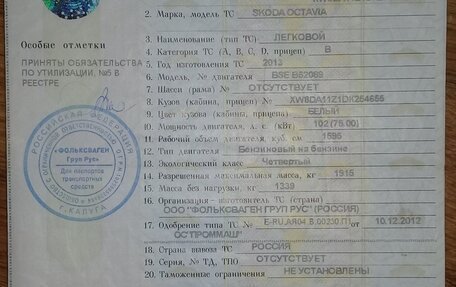 2. Марка, модель ТС SKODA OCTAVIA
Особые отметки
3. Наименование (тип ТС) ЛЕГКОВОЙ
4. Категория ТС (А, В, С, D, прицеп) B
ПРИНЯТЫ ОБЯЗАТЕЛЬСТВА
ПО УТИЛИЗАЦИИ, №5 В
РЕЕСТРЕ
5. Год изготовления ТС 2013
6. Модель, № двигателя BSE B62089
7. Шасси (рама) № ОТСУТСТВУЕТ
8. Кузов (кабина, прицеп) № XW8DA11Z1DK254656
9. Цвет кузова (кабины, прицепа) БЕЛЫЙ
10. Мощность двигателя, л. с. (кВт) 102 (75.00)
11. Рабочий объем двигателя, куб. см 1595
12. Тип двигателя Бензиновый на бензине
13. Экологический класс Четвертый
14. Разрешенная максимальная масса, кг 1915
15. Масса без нагрузки, кг 1339
16. Организация - изготовитель ТС (страна)
ООО "ФОЛЬКСВАГЕН ГРУП РУС" (РОССИЯ)
17. Одобрение типа ТС № E-RU.АЯ04.В.00250.П1 от 10.12.2012
ОС"ПРОММАШ"
18. Страна вывоза ТС РОССИЯ
19. Серия, № ТД, ТПО ОТСУТСТВУЕТ
20. Таможенные ограничения НЕ УСТАНОВЛЕНЫ
РОССИЙСКАЯ ФЕДЕРАЦИЯ
«ФОЛЬКСВАГЕН
Груп Рус»
Для паспортов
транспортных
средств
г. КАЛУГА